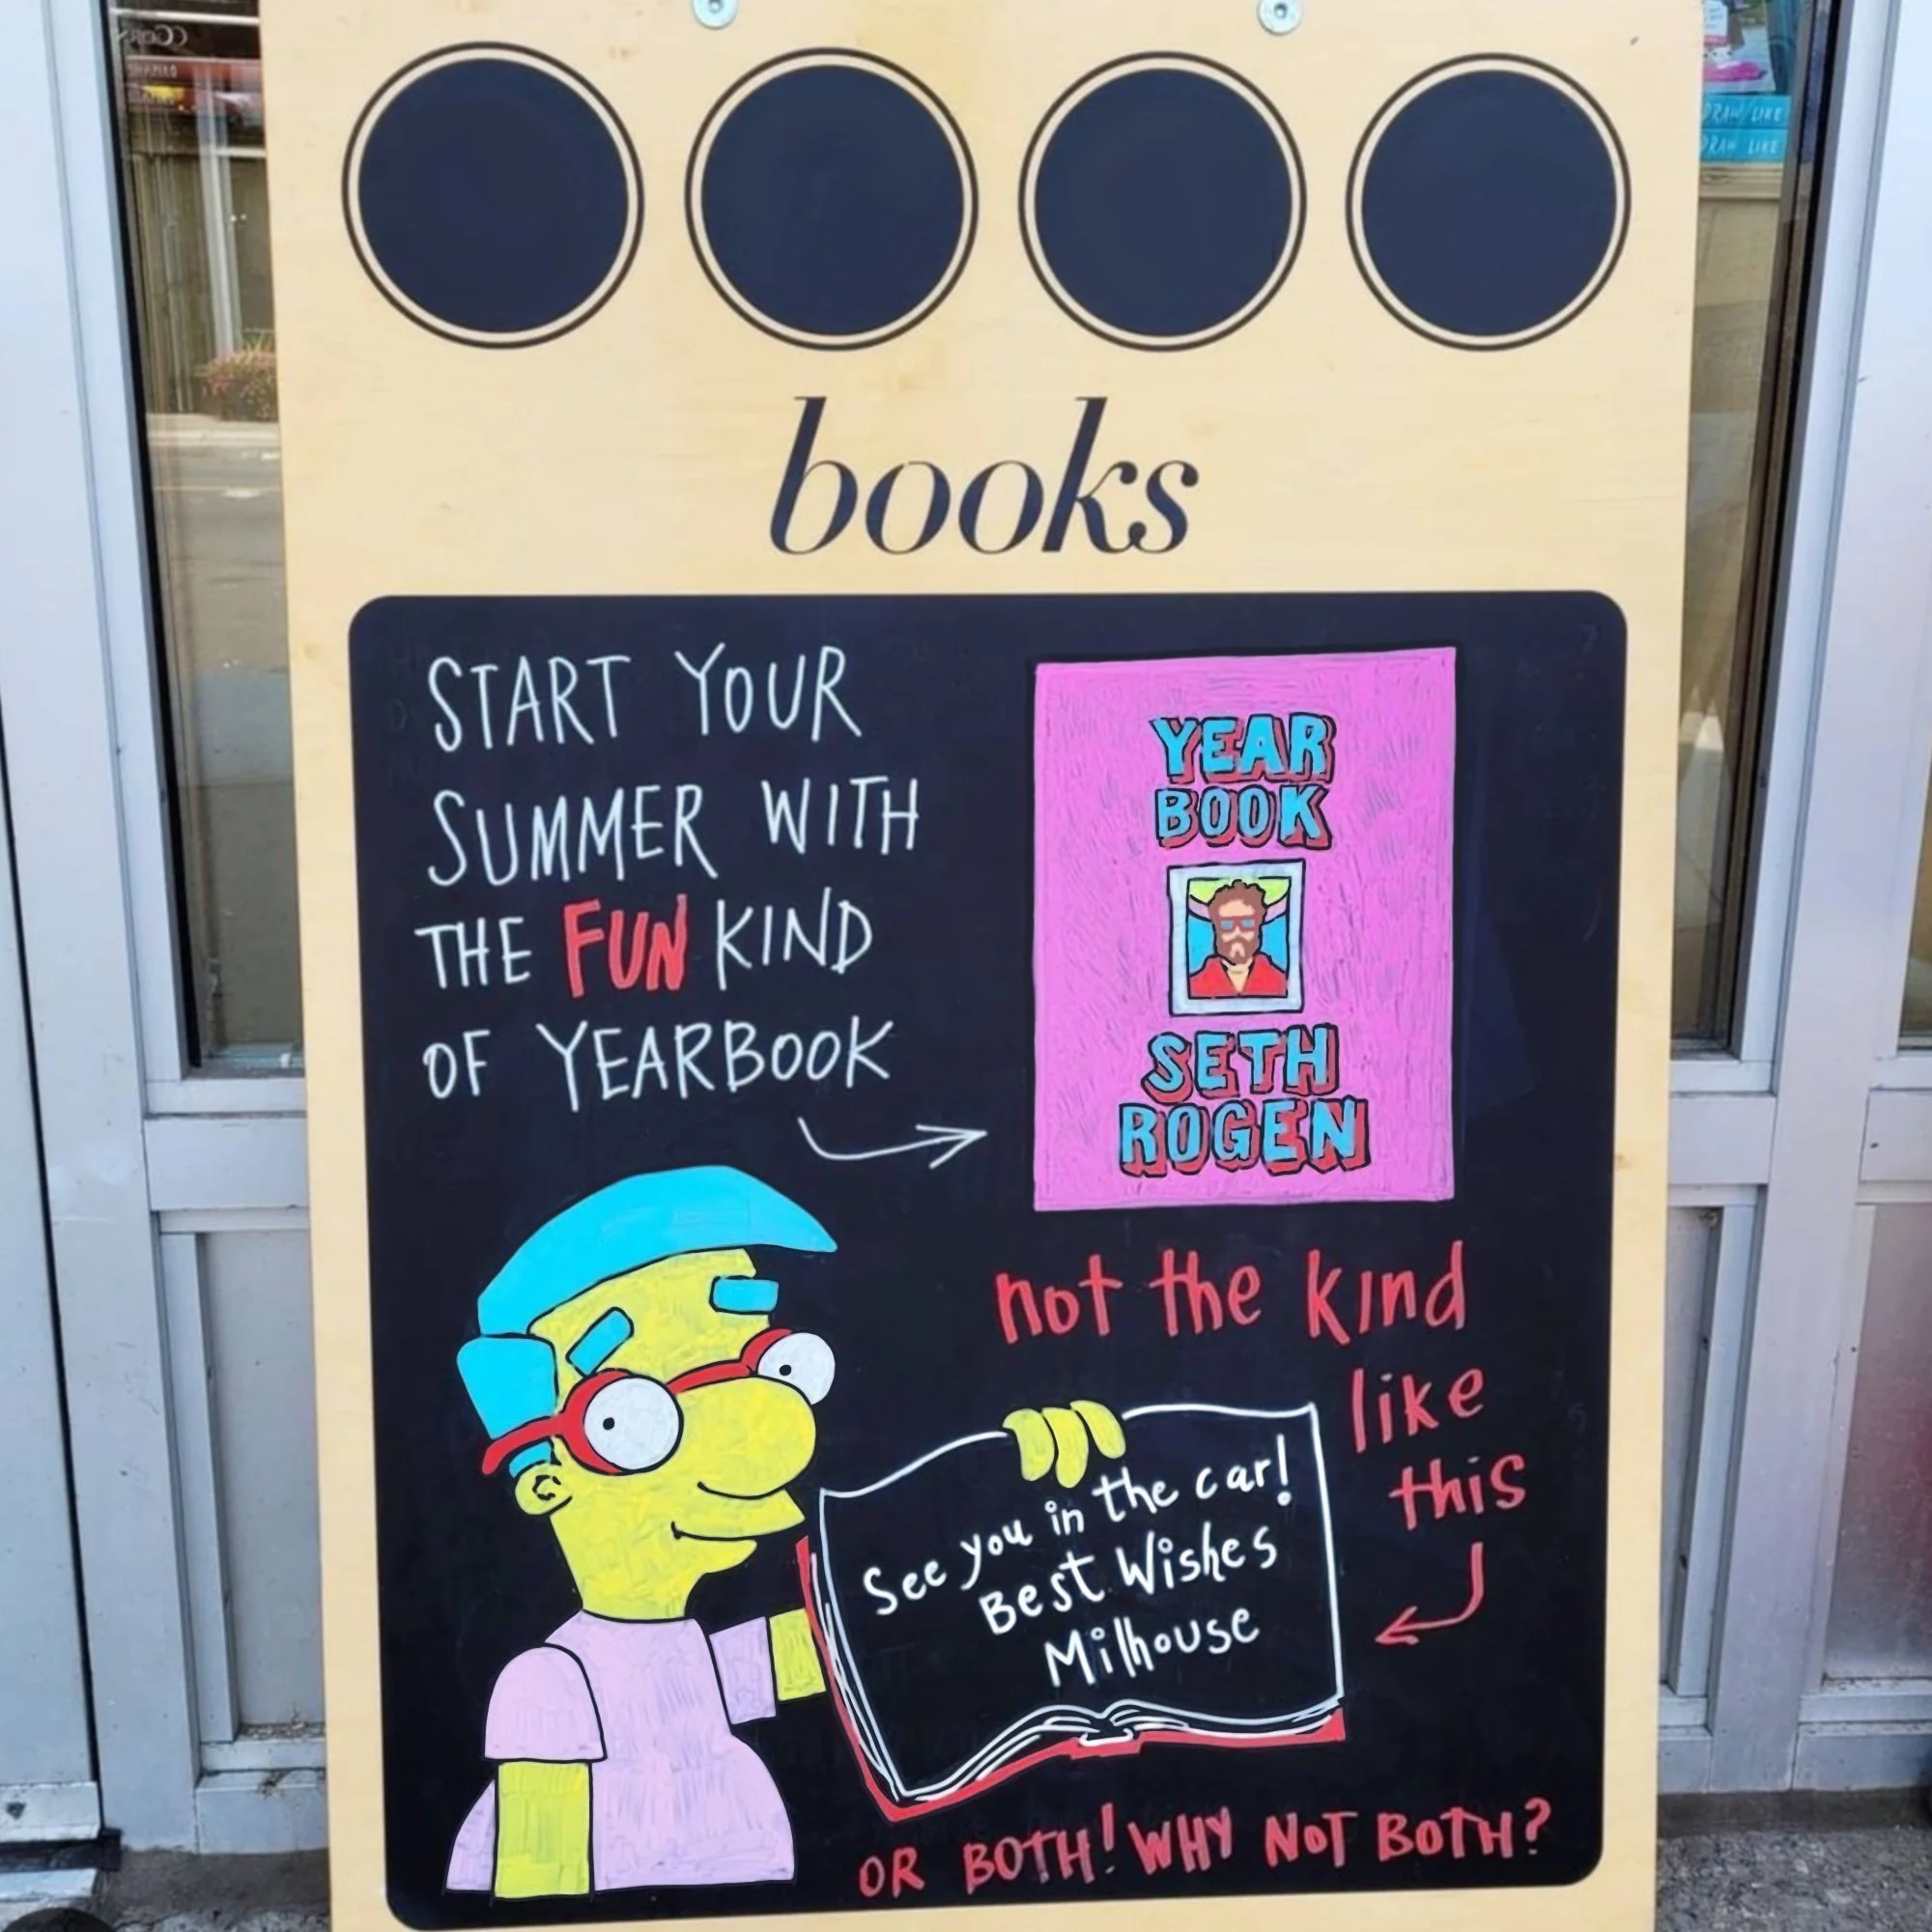 books
START YOUR
SUMMER WITH
THE FUN KIND
OF YEARBOOK
YEAR
BOOK
SETH
ROGEN
not the kind
like
this
See you in the car!
Best Wishes
Milhouse
OR BOTH! WHY NOT BOTH?
DRAW LIKE
DRAW LIKE